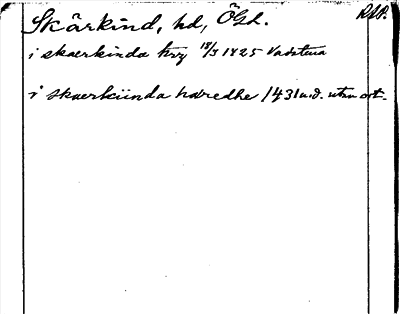 Skärkind, hd, Ögd. RAP.
i skaerkinda hrz 18/3 1425 Vadstena
i skaerkiinda haeredhe 1431 u.d. utan ort.